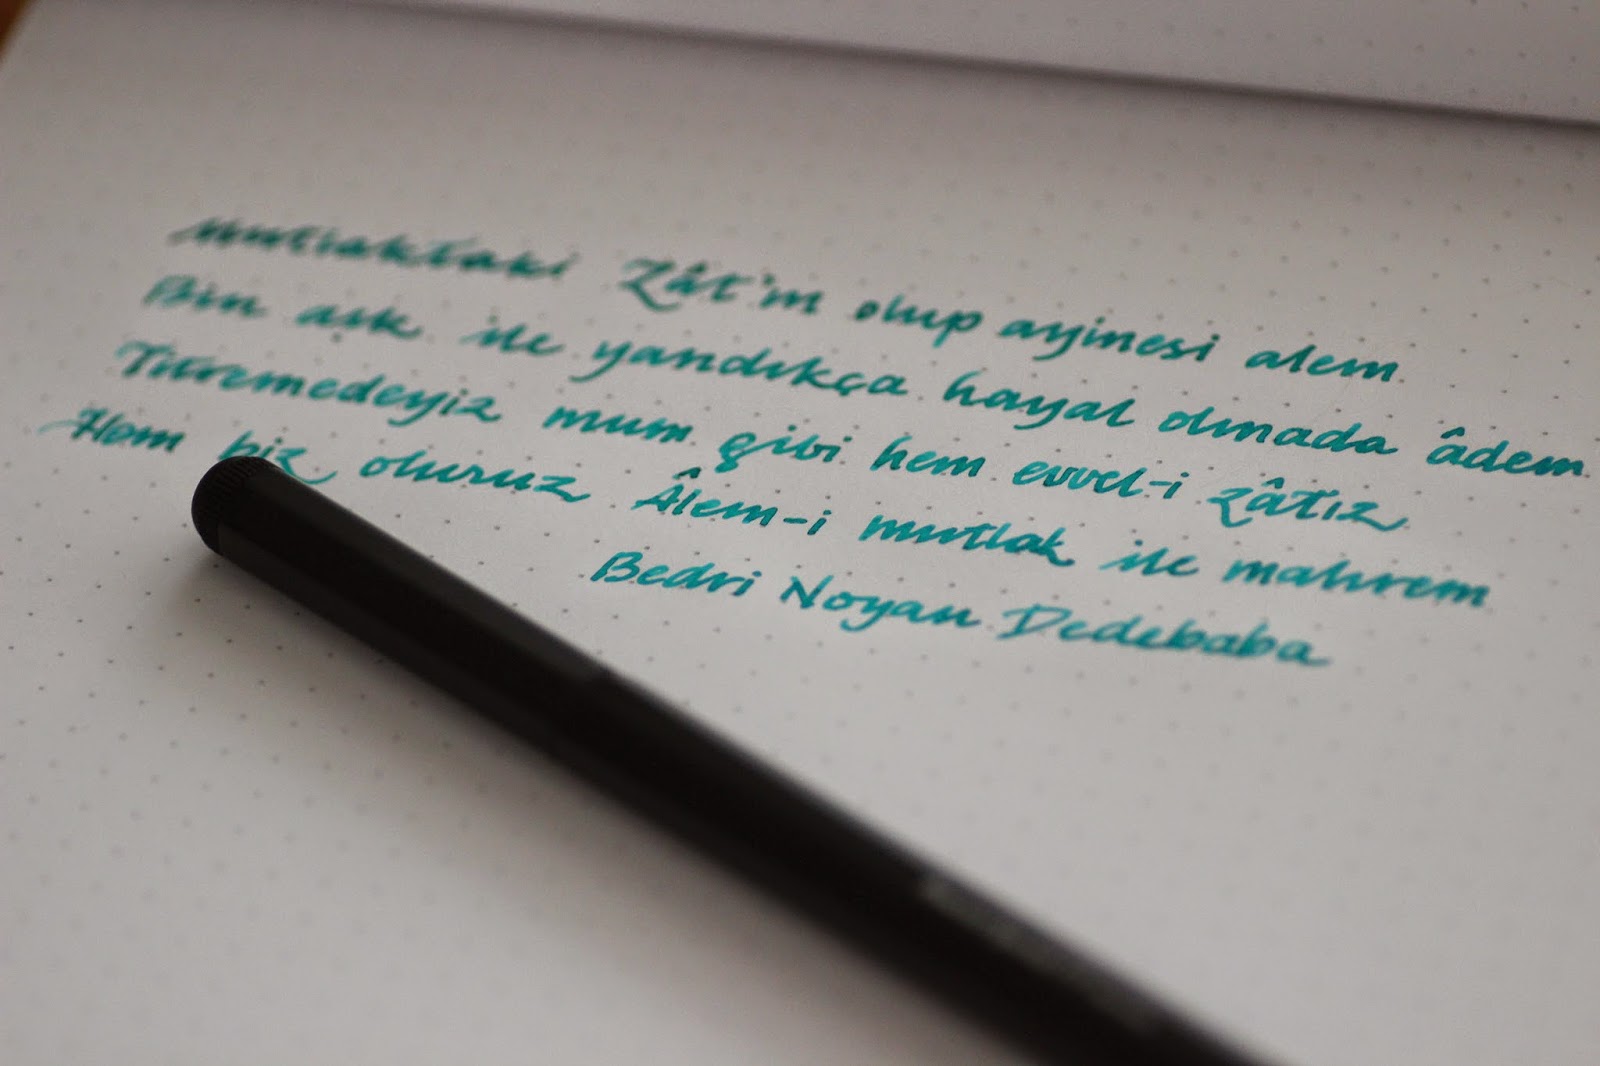 Mutlaktaki Zât'ın olup ayinesi alem
Bin aşk ile yandıkça hayal olmada âdem
Titremedeyiz mum gibi hem evvel-i zâtız
Hem biz oluruz Âlem-i mutlak ile mahrem
Bedri Noyan Dedebaba